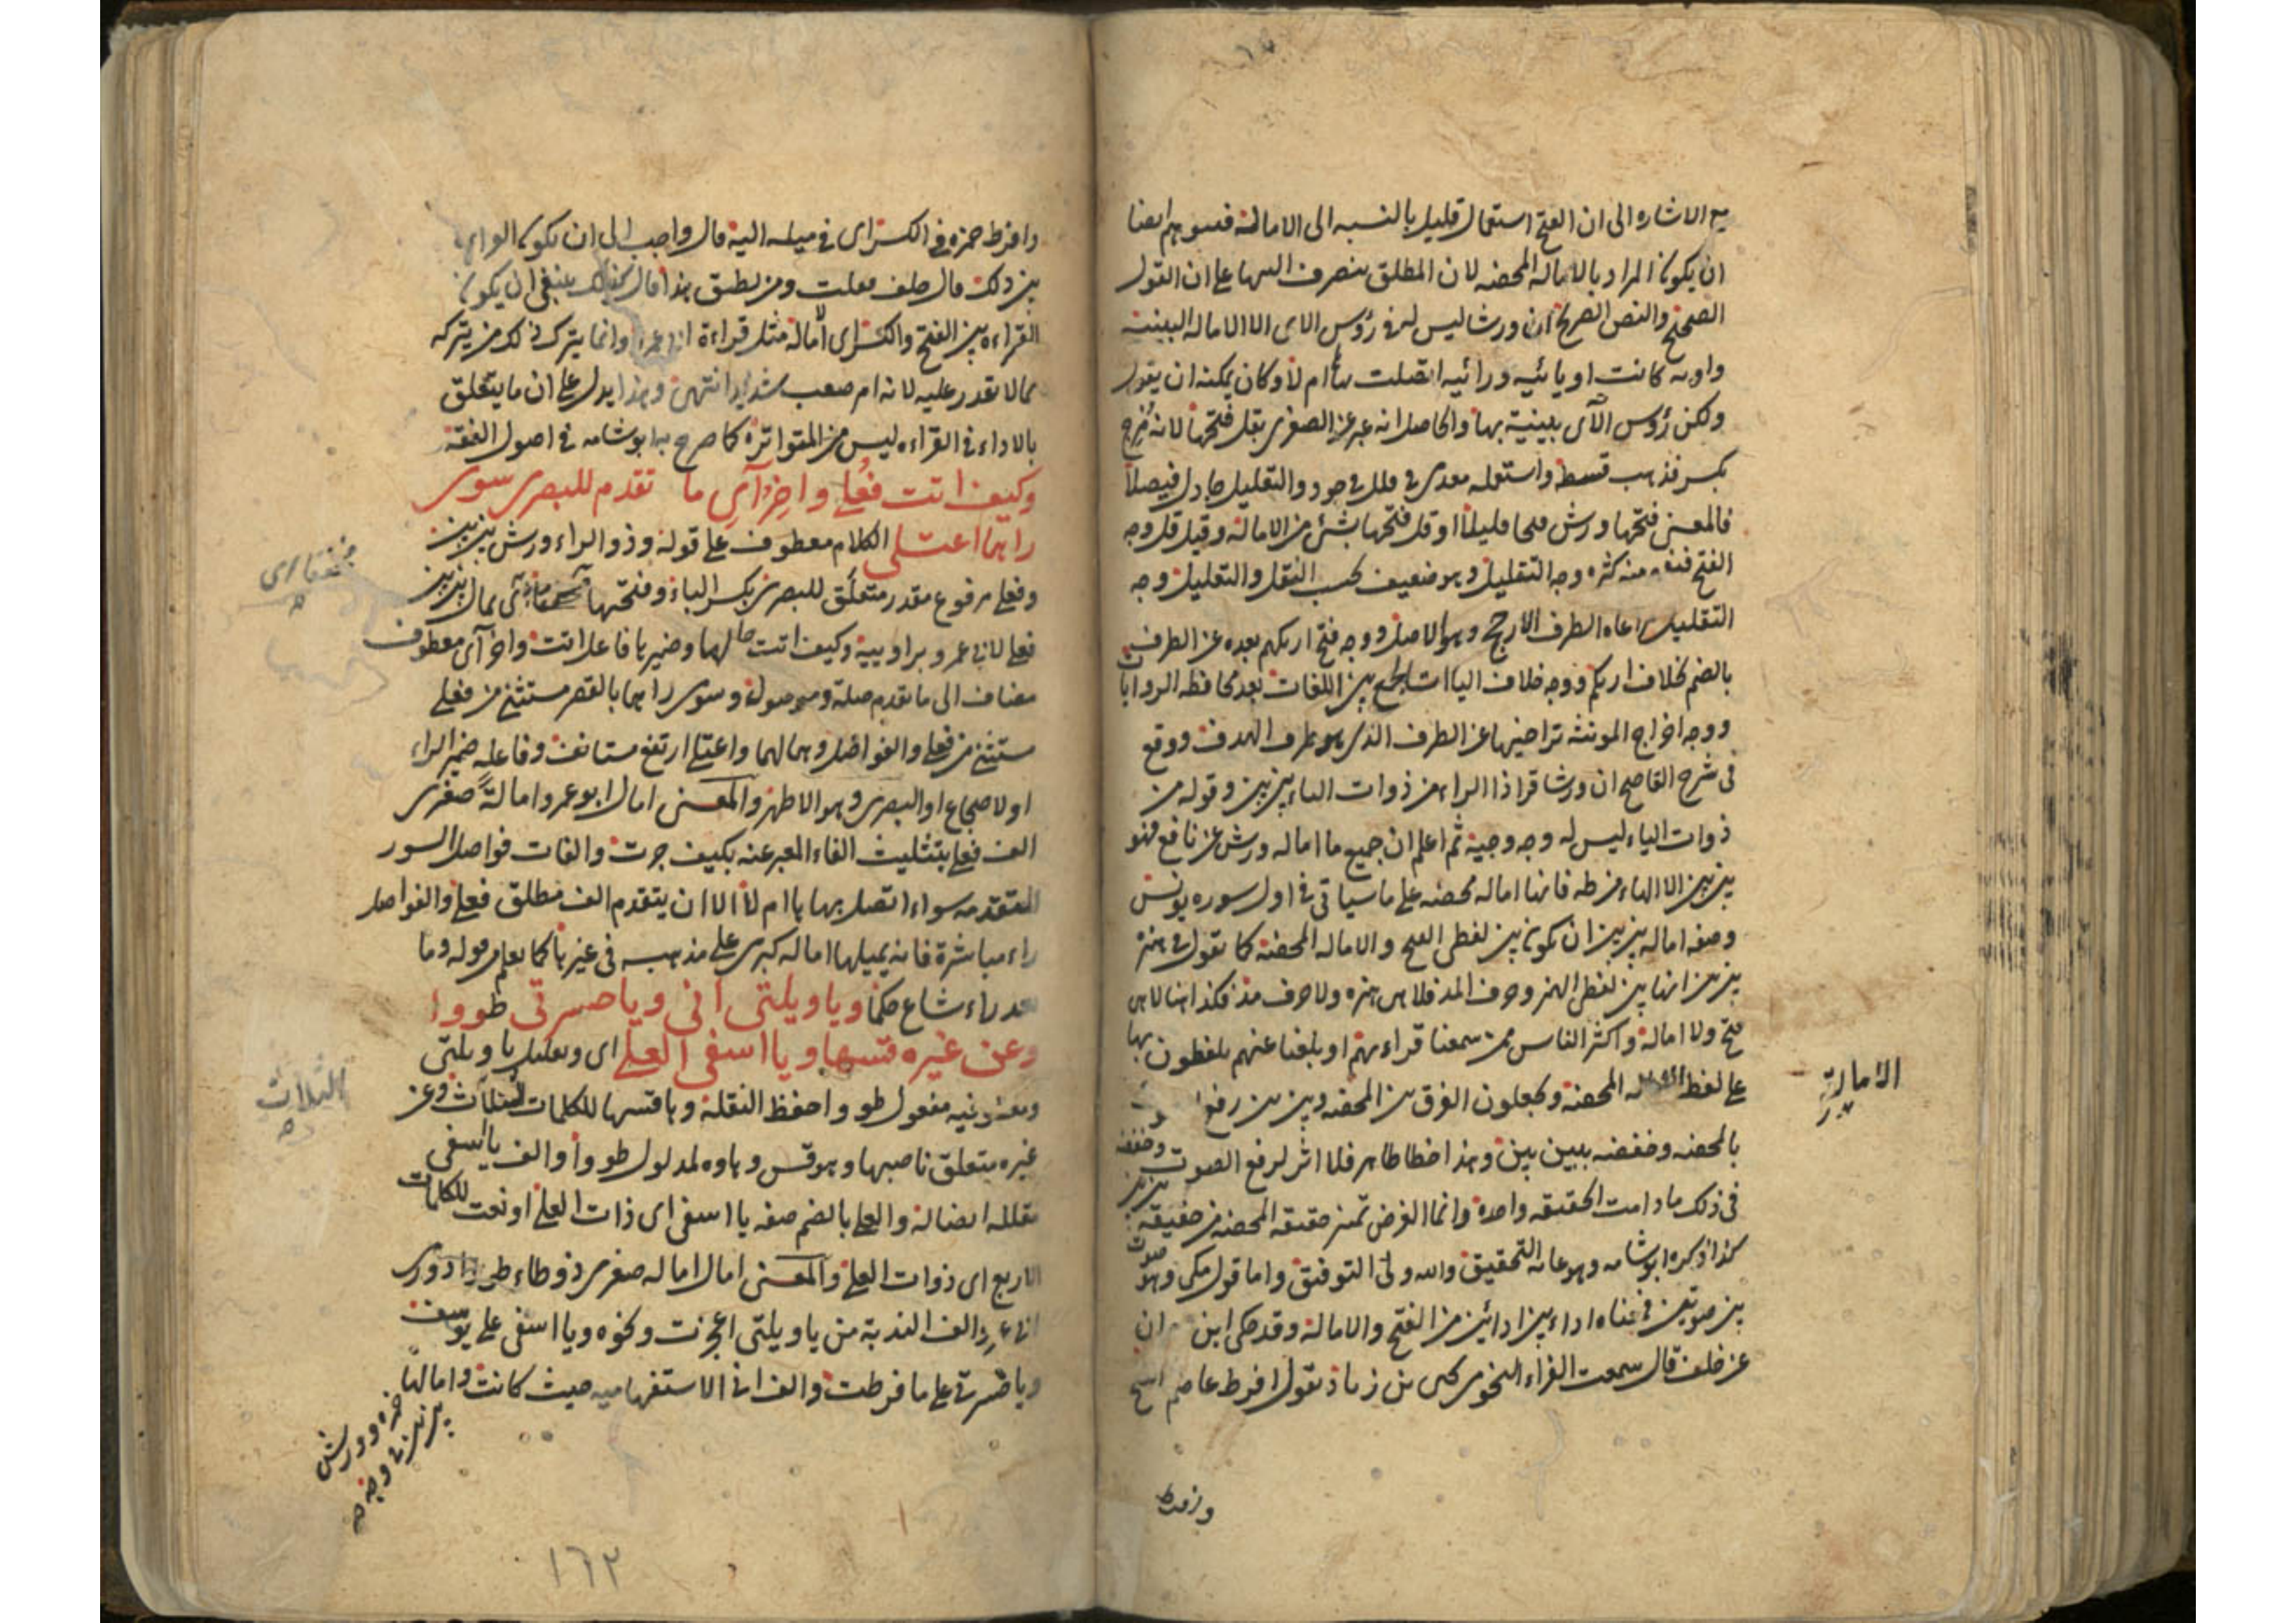 مع الاشاره الى ان الفتح استعمال قليل بالنسبه الى الامالة فسوهم ايضا
ان يكون المراد بالاماله المحضه لان المطلق ينصرف اليها على ان القول
الصحيح والنص الصريح ان ورشا ليس له في رؤس الاى الا الاماله البينية
واويه كانت او يائيه ورائيه اتصلت بها ام لا وكان يمكنه ان يقول
ولكن رؤس الآى بينية بها والحاصل انه عبر عن الصغرى بقل فتحها لانه
فالمعنى فتحها ورش فتحا قليلا او قل فتحها بشئ من الامالة وقيل قل وجه
الفتح منه كثره وجه التقليل وهو ضعيف بحسب النقل والتقليل وجه
التقليل مراعاه الطرف الارجح وهو الاصل ووجه فتح اريكهم بعده عن الطرف
بالضم بخلاف اريكم ووجه خلاف الياات الجمع بين اللغات بعد محافظه الروايات
ووجه اخراج المونثه تراخيها عن الطرف الذى هو طرف الهدف ووقع
فى شرح القاصح ان ورشا قرا ذا الراء من ذوات الياء بين بين وقوله من
ذوات الياء ليس له وجه وجيه ثم اعلم ان جميع ما اماله ورش عن نافع فهو
بين بين الا الهاء من طه فانها اماله محضه على ما سياتى فى اول سوره يونس
وصفه اماله بين بين ان يكون بين لفظى الفتح والاماله المحضة كما تقول فى همزة
بين بين انها بين لفظى الهمز وحرف المد فلا هى همزه ولا حرف مد فكذا هنا لا هى
فتح ولا امالة واكثر الناس ممن سمعنا قراءتهم او بلغنا عنهم يلفظون بها
على لفظ الاماله المحضة ويجعلون الفرق بين المحضه وبين بين رفع
الامالة
بالمحضه وخفضه ببين بين وهذا خطا ظاهر فلا اثر لرفع الصوت وخفضه
فى ذلك ما دامت الحقيقه واحدة وانما الغرض تميز حقيقه المحضه من حقيقه بين بين
كذا ذكره ابو شامه وهو غاية التحقيق والله ولى التوفيق واما قول مكى وهو صوت
بين صوتين فمعناه اداء بين ادائين من الفتح والامالة وقد حكى ابن مهران
عن خلف قال سمعت الفراء النحوى يحيى بن زياد يقول افرط عاصم فى الفتح
وافرط
وافرط حمزه فى الكسر اى فى ميله اليه قال واحب الى ان يكون القراءة
بين ذلك قال خلف فقلت ومن يطيق هذا قال كذلك ينبغى ان يكون
القراءه بين الفتح والكسر اى الامالة مثل قراءة ابى عمرو وانما يترك ذلك من يتركه
مما لا يقدر عليه لانه امر صعب شديد انتهى وهذا يدل على ان ما يتعلق
بالاداء فى القراءه ليس من المتواترة كما صرح به ابو شامه فى اصول الفقه
وكيف اتت فعلى واخر آى ما تقدم للبصرى سوى
راهما اعتلى الكلام معطوف على قوله وذو الراء ورش بين بين
وفعلى مرفوع مقدر متعلق للبصرى بكسر الباء وفتحها اى يمال بين بين
مخففا اى
فعلى لابى عمرو براوييه وكيف اتت حالها وضميرها فاعل اتت واخر آى معطوف
مضاف الى ما تقدم صلة وموصول وسوى راهما بالقصر مستثنى من فعلى
مستثنى من فعلى والفواصل وهما لهما واعتلى ارتفع مستانف وفاعله ضمير الراء
او الاضجاع او البصرى وهو الاظهر والمعنى امال ابو عمرو امالة صغرى
الف فعلى بتثليث الفاء المعبر عنه بكيف جرت والفات فواصل السور
المتقدمه سواء اتصل بها ها ام لا الا ان يتقدم الف مطلق فعلى والفواصل
راء مباشرة فانه يميلها اماله كبرى على مذهبه فى غيرها كما يعلم من قوله وما
بعد راء شاع حكما ويا ويلتى انى ويا حسرتى طووا
وعن غيره قسها ويا اسفى العلى اى وتقليل يا ويلتى
غيره متعلق ناصبها وهو قس وهاوه لمدلول طووا والف يا اسفى
الثلاث
مقلله ايضا له والعلى بالضم صفه يا اسفى اى ذات العلى او نعت للكلمات
الاربع اى ذوات العلى والمعنى امال اماله صغرى ذو طاء طووا دورى
ابى عمرو الف الندبة من يا ويلتى اعجزت ونحوه ويا اسفى على يوسف
ويا حسرتى على ما فرطت والف انى الاستفهاميه حيث كانت وامالها
حمزه وورش
بين بين فى وجه
١٦٢